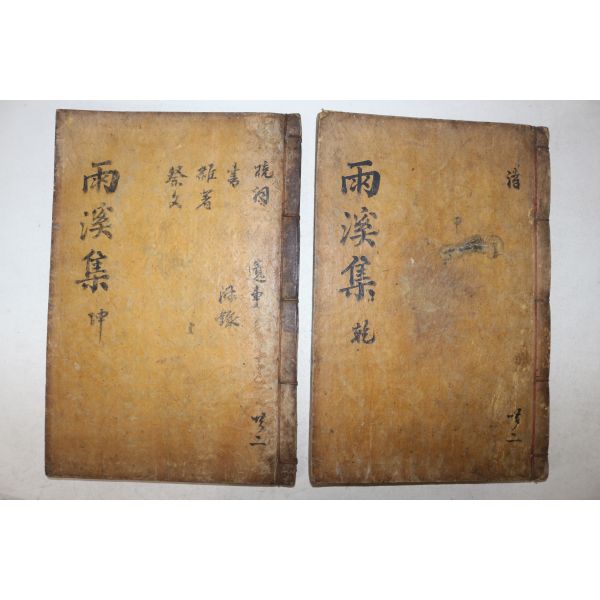 詩
雨溪集 乾
共二
輓詞 遺事
書 附錄
雜著
祭文
雨溪集 坤
共二